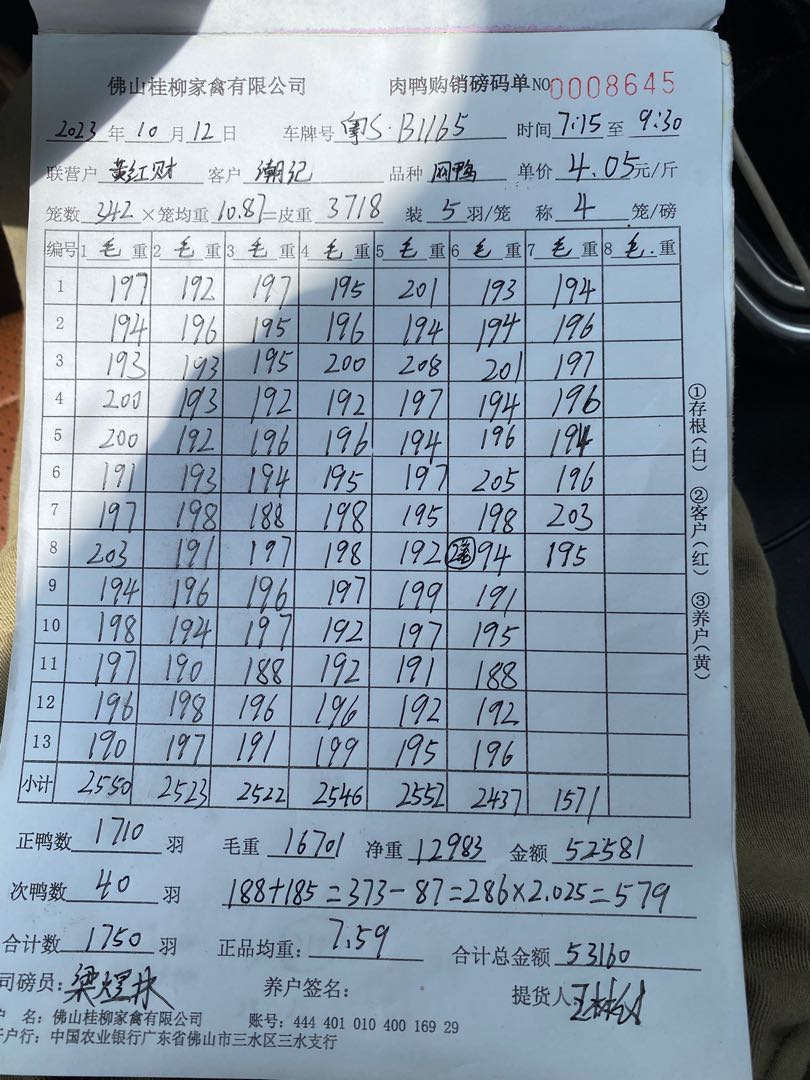 佛山桂柳家禽有限公司 肉鸭购销磅码单 NO 0008645
2023 年 10 月 12 日 车牌号 粤S·B1165 时间 7:15 至 9:30
联营户 黄红财 客户 潮记 品种 网鸭 单价 4.05 元/斤
笼数 342 ×笼均重 10.87 =皮重 3718 装 5 羽/笼 称 4 笼/磅
编号 1 毛 重 2 毛 重 3 毛 重 4 毛 重 5 毛 重 6 毛 重 7 毛 重 8 毛 重
1 197 192 197 195 201 193 194
2 194 196 195 196 194 194 196
3 193 193 195 200 208 201 197
4 200 193 192 192 197 194 196
5 200 192 196 196 194 196 194
6 191 193 194 195 197 205 196
7 197 198 188 198 195 198 203
8 203 191 197 198 192 94 195
9 194 196 196 197 199 191
10 198 194 197 192 197 195
11 197 190 188 192 191 188
12 196 198 196 196 192 192
13 190 197 191 199 195 196
小计 2550 2523 2522 2546 2552 2437 1571
正鸭数 1710 羽 毛重 16701 净重 12983 金额 52581
次鸭数 40 羽 188+185=373-87=286×2.025=579
合计数 1750 羽 正品均重: 7.59 合计总金额 53160
司磅员: 梁煜林 养户签名: 提货人
户 名: 佛山桂柳家禽有限公司 账号: 444 401 010 400 169 29
开户行: 中国农业银行广东省佛山市三水区三水支行
①存根(白) ②客户(红) ③养户(黄)